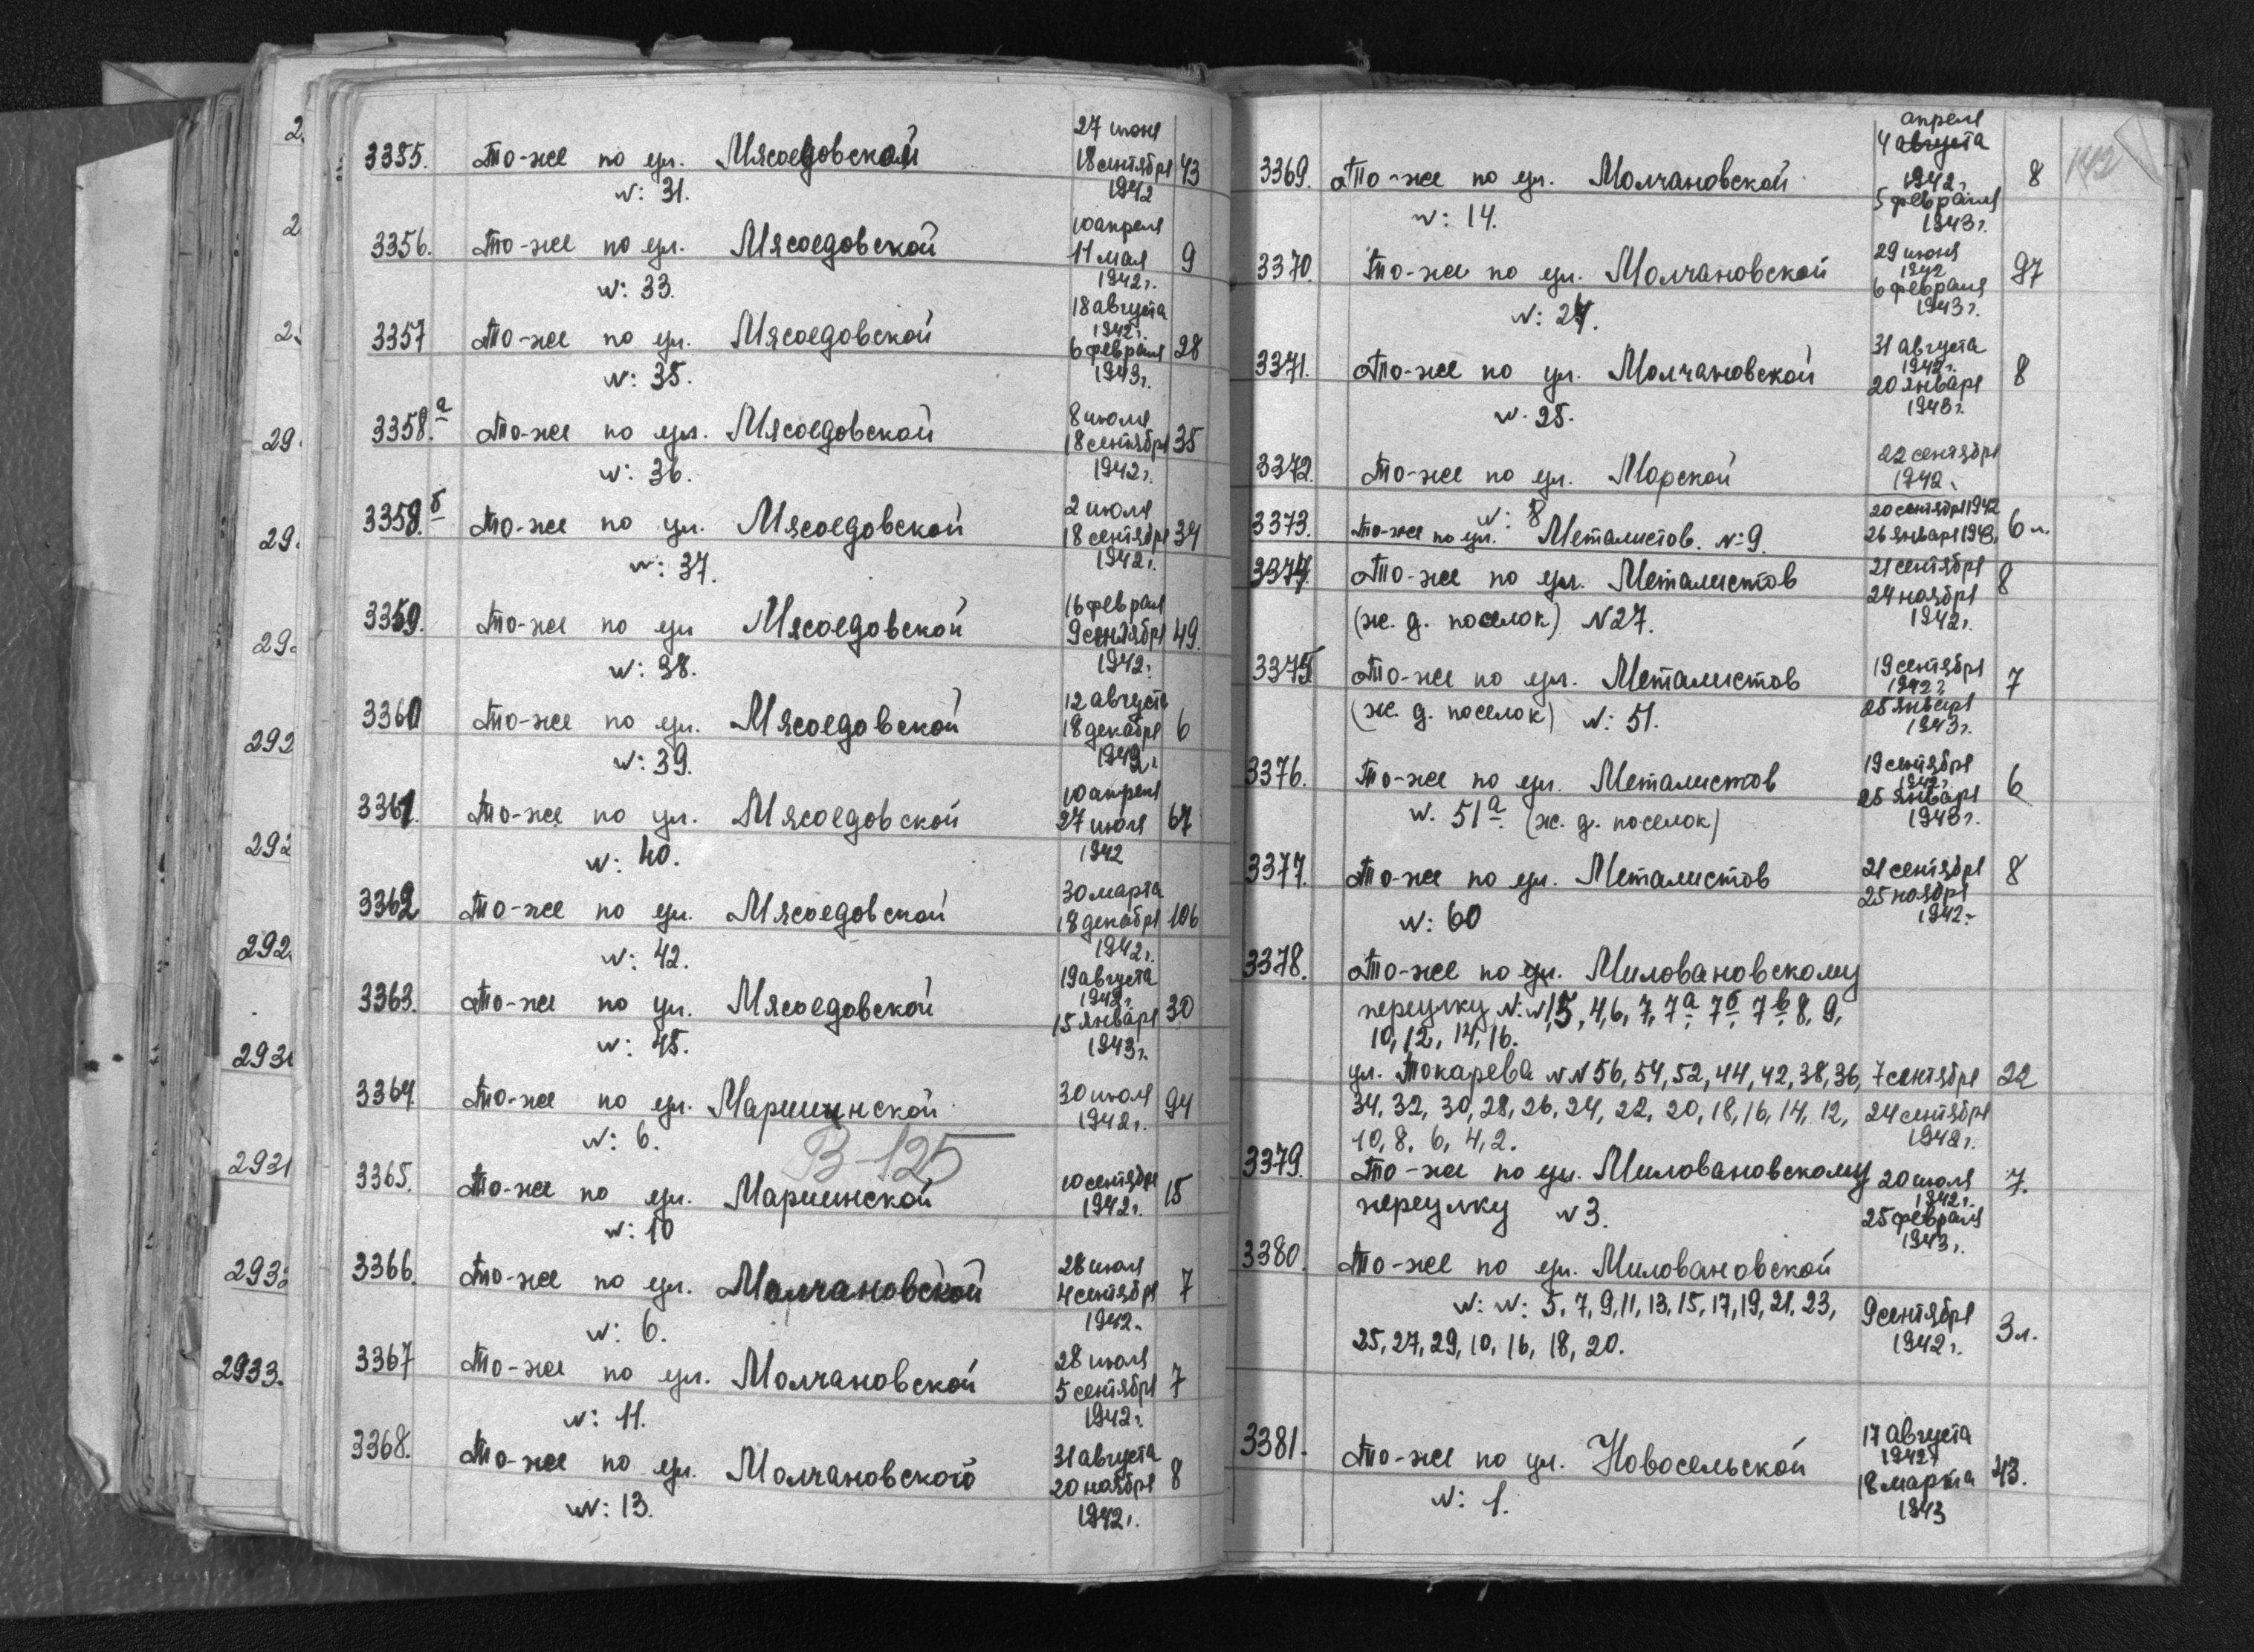 3355. То-же по ул. Мясоедовской 27 июня
18 сентября 43
N: 31. 1942
3356. То-же по ул. Мясоедовской 10 апреля
11 мая 9
N: 33. 1942г.
3357 То-же по ул. Мясоедовской 18 августа
1942г.
6 февраля 28
N: 35. 1943г.
3358.а То-же по ул. Мясоедовской 8 июля
18 сентября 35
N: 36. 1942г.
3358.б То-же по ул. Мясоедовской 2 июля
18 сентября 34
N: 37. 1942г.
3359. То-же по ул Мясоедовской 16 февраля
9 сентября 49.
N: 38. 1942г.
3360 То-же по ул. Мясоедовской 12 августа
18 декабря 6
N: 39. 1942г.
3361. То-же по ул. Мясоедовской 10 апреля
27 июля 67
N: 40. 1942
3362 То-же по ул. Мясоедовской 30 марта
18 декабря 106
N: 42. 1942г.
3363. То-же по ул. Мясоедовской 19 августа
1942г.
15 января 30
N: 45. 1943г.
3364 То-же по ул. Мариинской 30 июля 94
N: 6. 1942г.
В-125
3365. То-же по ул. Мариинской 10 сентября 15
N: 10 1942г.
3366. То-же по ул. Молчановской 28 июля
4 сентября 7
N: 6. 1942.
3367 То-же по ул. Молчановской 28 июля
5 сентября 7
N: 11. 1942г.
3368. То-же по ул. Молчановского 31 августа
20 ноября 8
N: 13. 1942г.
142
апреля
4 августа
3369. То-же по ул. Молчановской 1942г. 8
5 февраля
N: 14. 1943г.
3370. То-же по ул. Молчановской 29 июня 97
1942
6 февраля
N: 24. 1943г.
3371. То-же по ул. Молчановской 31 августа 8
1942г.
20 января
N. 25. 1943г.
3372. То-же по ул. Морской 22 сентября
N: 8 1942г.
3373. То-же по ул. Металистов. N: 9. 20 сентября 1942 6 л.
26 января 1943г.
3374. То-же по ул. Металистов 21 сентября 8
24 ноября
(ж. д. поселок) N 27. 1942г.
3375 То-же по ул. Металистов 19 сентября 7
1942г.
(ж. д. поселок) N: 51. 25 января
1943г.
3376. То-же по ул. Металистов 19 сентября 6
1942г.
25 января
N. 51а. (ж. д. поселок) 1943г.
3377. То-же по ул. Металистов 21 сентября 8
25 ноября
N: 60 1942г.
3378. То-же по ул. Миловановскому
переулку N: N 1, 5, 4, 6, 7, 7а, 7б, 7в, 8, 9,
10, 12, 14, 16.
ул. Токарева NN 56, 54, 52, 44, 42, 38, 36, 7 сентября 22
34, 32, 30, 28, 26, 24, 22, 20, 18, 16, 14, 12, 24 сентября
10, 8, 6, 4, 2. 1942г.
3379. То-же по ул. Миловановскому 20 июля 7.
1942г.
переулку N 3. 25 февраля
1943г.
3380. То-же по ул. Миловановской
N: N: 5, 7, 9, 11, 13, 15, 17, 19, 21, 23, 9 сентября 3 л.
25, 27, 29, 10, 16, 18, 20. 1942г.
3381. То-же по ул. Новосельской 17 августа
1942г.
18 марта 43.
N: 1. 1943